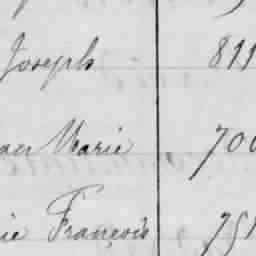 Joseph 811
Marie 700
François 751